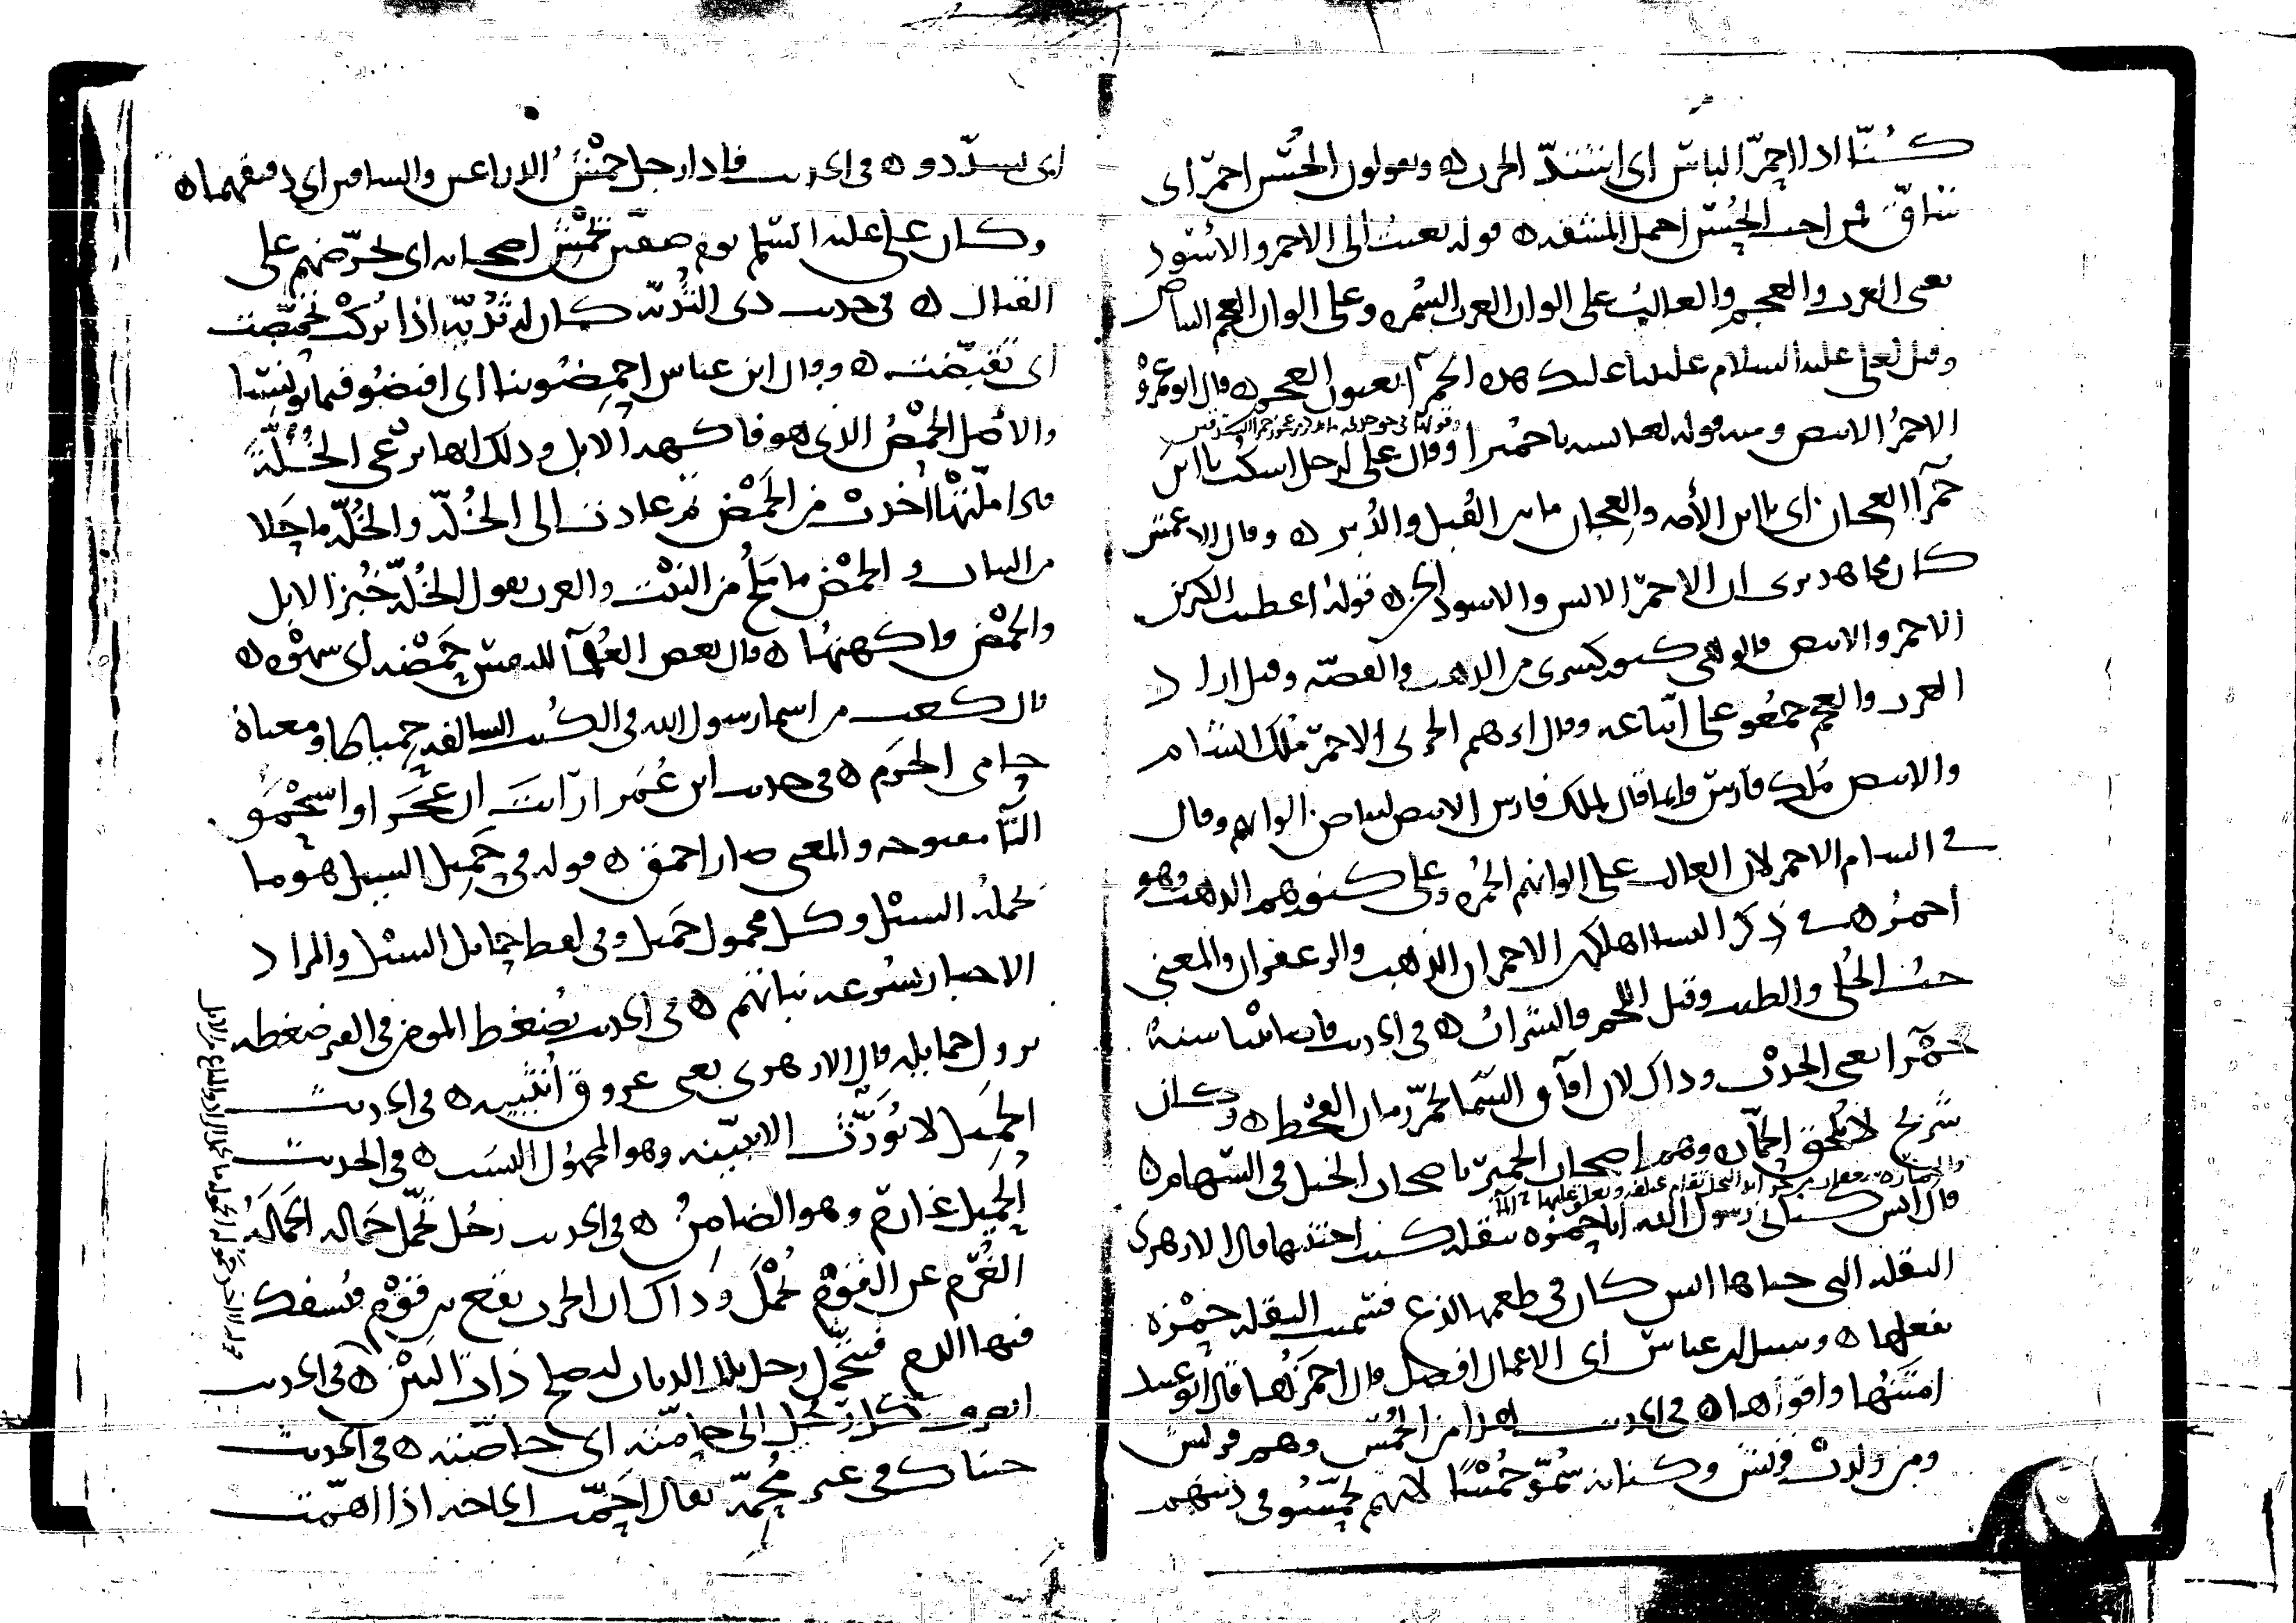 كنا اذا احمر الباس اى اشتد الحرب ويقولون الحسن احمر اى
شاق فمن احب الحسن احتمل المشقه قوله بعثت الى الاحمر والاسود
يعنى العرب والعجم والغالب على الوان العرب السمره وعلى الوان العجم البياض
وقيل لعلى عليه السلام غلبتنا عليك هذه الحمرا يعنون العجم قال ابو عمرو
الاحمر الابيض ومنه قوله لعائشه يا حميرا وقال على لرجل اسكت يا ابن
حمرا العجان اى يا ابن الامه والعجان ما بين القبل والدبر وقال الاعمش
كان مجاهد يرى ان الاحمر الانس والاسود الجن قوله اعطيت الكنزين
الاحمر والابيض قالوا هى كنوز كسرى من الذهب والفضه وقيل اراد
العرب والعجم جمعوا على اتباعه وقال ابرهيم الحربى الاحمر ملك الشام
والابيض ملك فارس وانما قال لملك فارس الابيض لبياض الوانهم وقال
فى الشام الاحمر لان الغالب على الوانهم الحمره وعلى كنوزهم الذهب وهو
احمر فى ذكر النسا اهلكهن الاحمران الذهب والزعفران والمعنى
حب الحلى والطيب وقيل اللحم والشراب فى الحديث فاصابتنا سنة
حمرا يعنى الجدب وذاك لان افاق السما تحمر زمان القحط وكان
شريح لا يلحق الحماره وهم اصحاب الحمير باصحاب الخيل فى السهام
قال انس كنانى رسول الله ابا حمزه ببقله كنت اجتنيها قال الازهرى
البقله التى جناها انس كان فى طعمها لذع فسميت البقله حمزه
بفعلها وسئل ابن عباس اى الاعمال افضل قال احمزها قال ابو عبيد
امتنها واقواها فى الحديث هذا من الحمس وهم قريش
ومن ولدت قريش وكنانه سموا حمسا لانهم تحمسوا فى دينهم
اى تشددوا فى الحديث فاذا رجل حمش الذراعين والساقين اى دقيقهما
وكان على عليه السلم يوم صفين يحمش اصحابه اى يحرضهم على
القتال فى حديث ذى الثديه كان له ثديه اذا تركت تحمصت
اى تقبضت وقال ابن عباس احمضوا بنا اى افيضوا فيما يونسنا
والاصل الحمض الذى هو فاكهه الابل وذلك انها ترعى الخلة
فاذا ملتها اخذت من الحمض ثم عادت الى الخلة والخلة ما حلا
من النبات والحمض ما ملح من النبت والعرب يقول الخلة خبز الابل
والحمض فاكهتها وقال بعض العلما للنفس حمضه اى شهوه
قال كعب من اسما رسول الله فى الكتب السالفه حمياطا ومعناه
حامى الحرم فى حديث ابن عمر ارايت ان عجز او استحمق
التا مفتوحه والمعنى صار احمق قوله فى حميل السيل هو ما
يحمله السيل وكل محمول حميل وفى لفظ حمايل السيل والمراد
الاخبار بسرعه نباتهم فى الحديث يضغط المومن فى القبر ضغطه
تزول حمايله قال الازهرى يعنى عروق انثييه فى الحديث
الحميل لا يورث الا ببينه وهو المجهول النسب فى الحديث
الحميل غارم وهو الضامن فى الحديث رجل تحمل حماله الحماله
الغرم عن القوم تحمل وذاك ان الحرب تقع بين قوم فيسفك
فيها الدم فيتحمل رجل تلك الديات ليصلح ذات البين فى الحديث
انصرف كل رجل الى حامته اى خاصته فى الحديث
جيناك فى غير محمة يقال احمت الحاجه اذا اهمت